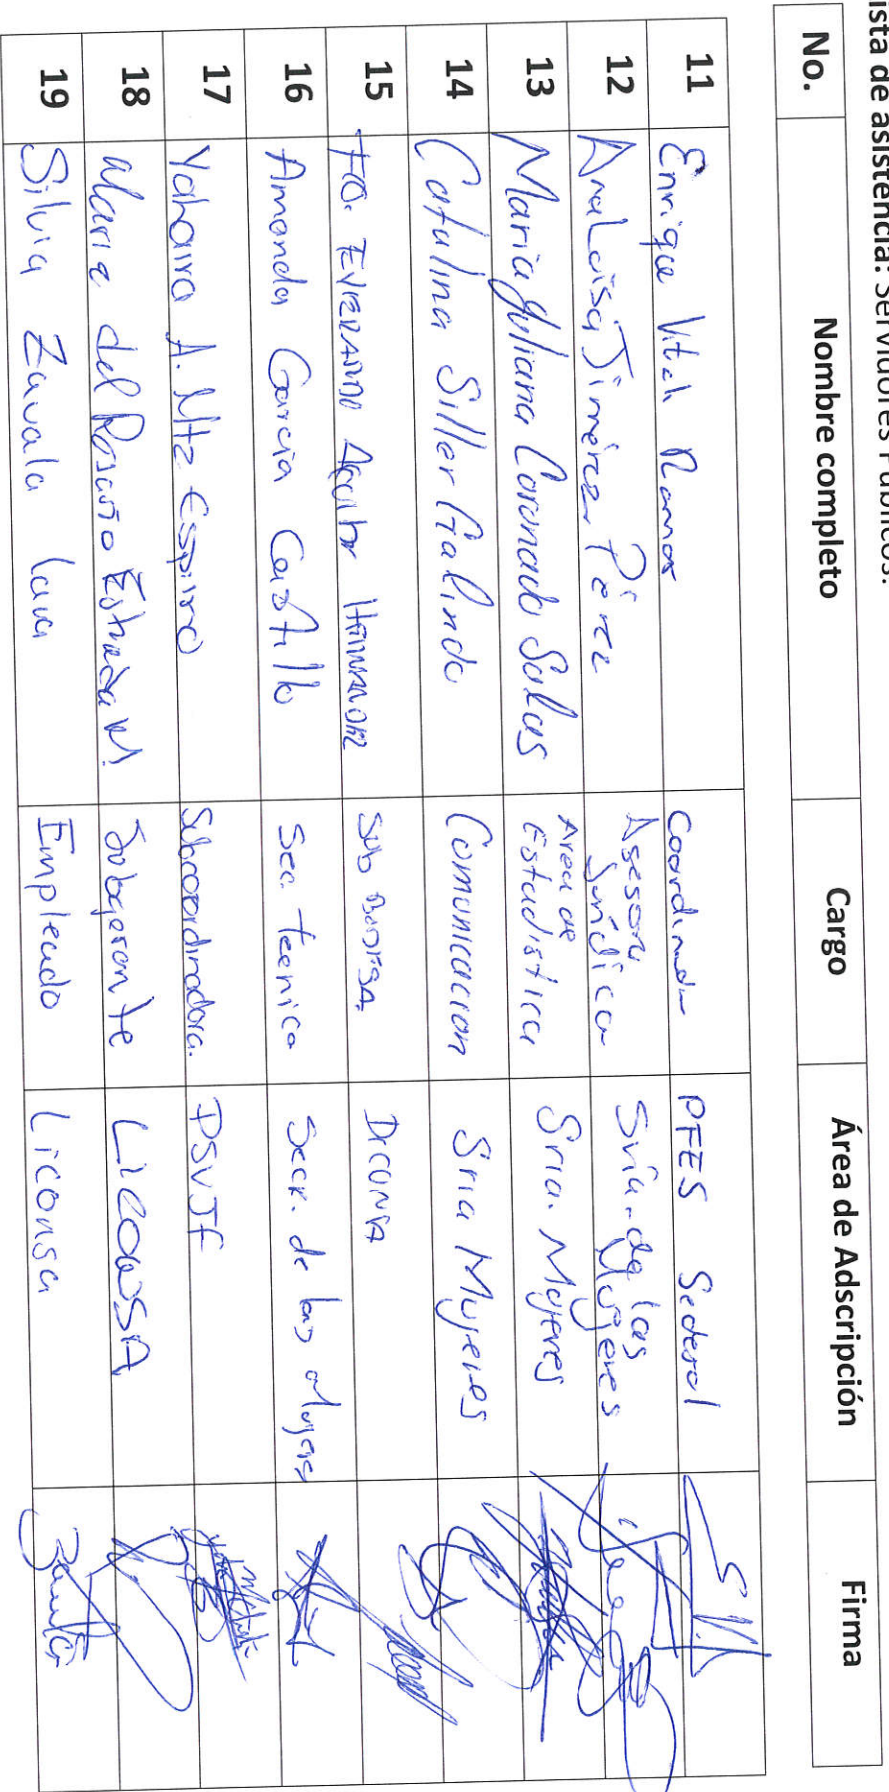 ista de asistencia: Servidores Públicos.
No. Nombre completo Cargo Área de Adscripción Firma
11 Enrique Vital Ramos Coordinador PFES Sederol
12 Ana Luisa Jiménez Pérez Asesora Jurídica Sría. de las Mujeres
13 Maria Juliana Coronado Salas Area de Estadistica Sria. Mujeres
14 Catalina Siller Galindo Comunicacion Sria Mujeres
15 Fo. EVERARDO Aguilar HERNANDEZ SUB BODEGA DICONSA
16 Amanda Garcia Castillo Sec. Tecnica Secr. de las Mujeres
17 Yahaira A. Mtz Espino Subcoordinadora. PSVJF
18 Maria del Rosario Estrada M. Subgerente LICONSA
19 Silvia Zavala Lara Empleado Liconsa